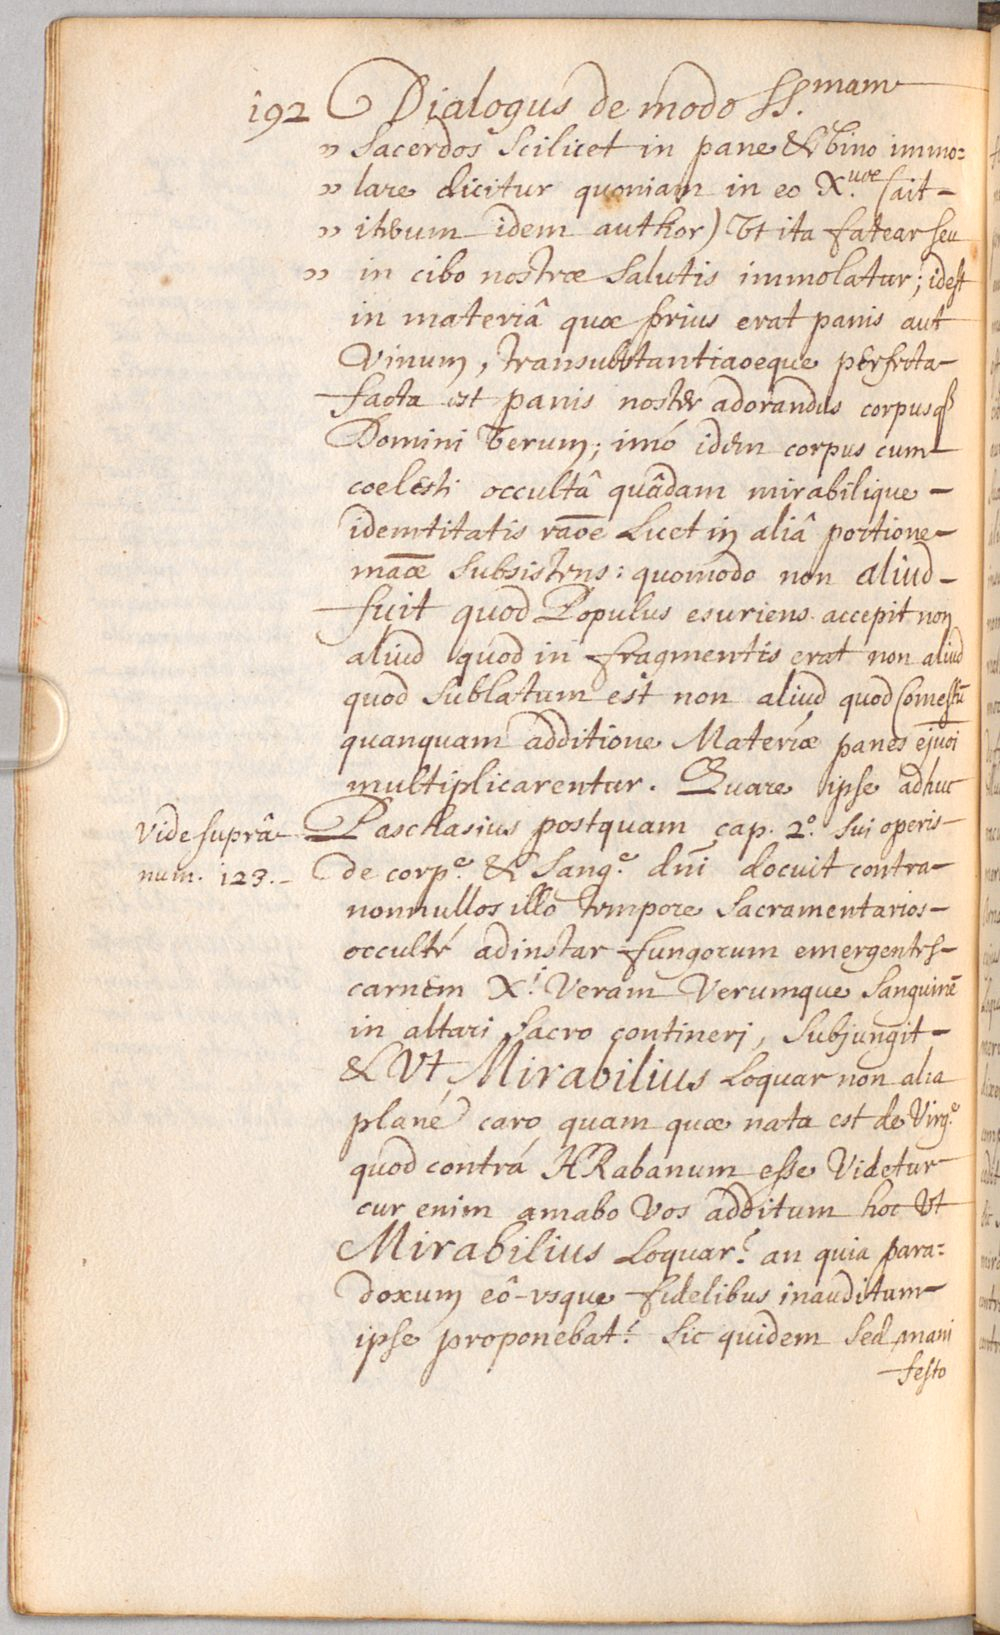 192 Dialogus de modo SS.mam
" Sacerdos Scilicet in pane & Vino immo=
" lare dicitur quoniam in eo X.
" iterum idem author) Vt ita fatear seu
" in cibo nostræ Salutis immolatur; idest
in materiâ quæ prius erat panis aut
Vinum, transubstantiaoeque perfecta
facta est panis noster adorandus corpusq
Domini Verum; imó idem corpus cum
coelesti occultâ quâdam mirabilique
idemtitatis raōe Licet in aliâ portione
māoe Subsistens: quomodo non aliud
fuit quod Populus esuriens accepit non
aliud quod in fragmentis erat non aliud
quod Sublatum est non aliud quod Comestū
quanquam additione Materiæ panes ejuōi
multiplicarentur. Quare ipse adhuc
Vide suprâ
num. 123.
Paschasius postquam cap. 2.º sui operis
de corp.e & Sang.e dñi docuit contra
nonnullos illo tempore Sacramentarios
occulté adinstar fungorum emergentes
carnem X.i Veram Verumque Sanguinē
in altari Sacro contineri, Subjungit
& Vt Mirabilius Loquar non alia
plané caro quam quæ nata est de Virg.e
quod contrá HRabanum esse Videtur
cur enim amabo Vos additum hoc Vt
Mirabilius Loquar? an quia para=
doxum eô-usque fidelibus inauditum
ipse proponebat? Sic quidem Sed mani
festo